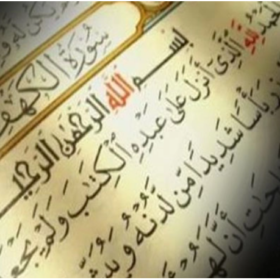 سُورَةُ الْكَهْفِ
بِسْمِ اللَّهِ الرَّحْمَٰنِ الرَّحِيمِ
لِلَّهِ الَّذِي أَنزَلَ عَلَىٰ عَبْدِهِ الْكِتَابَ وَلَمْ يَجْعَل
بَأْسًا شَدِيدًا مِّن لَّدُنْهُ وَيُبَشِّرَ
أَنَّ لَهُمْ